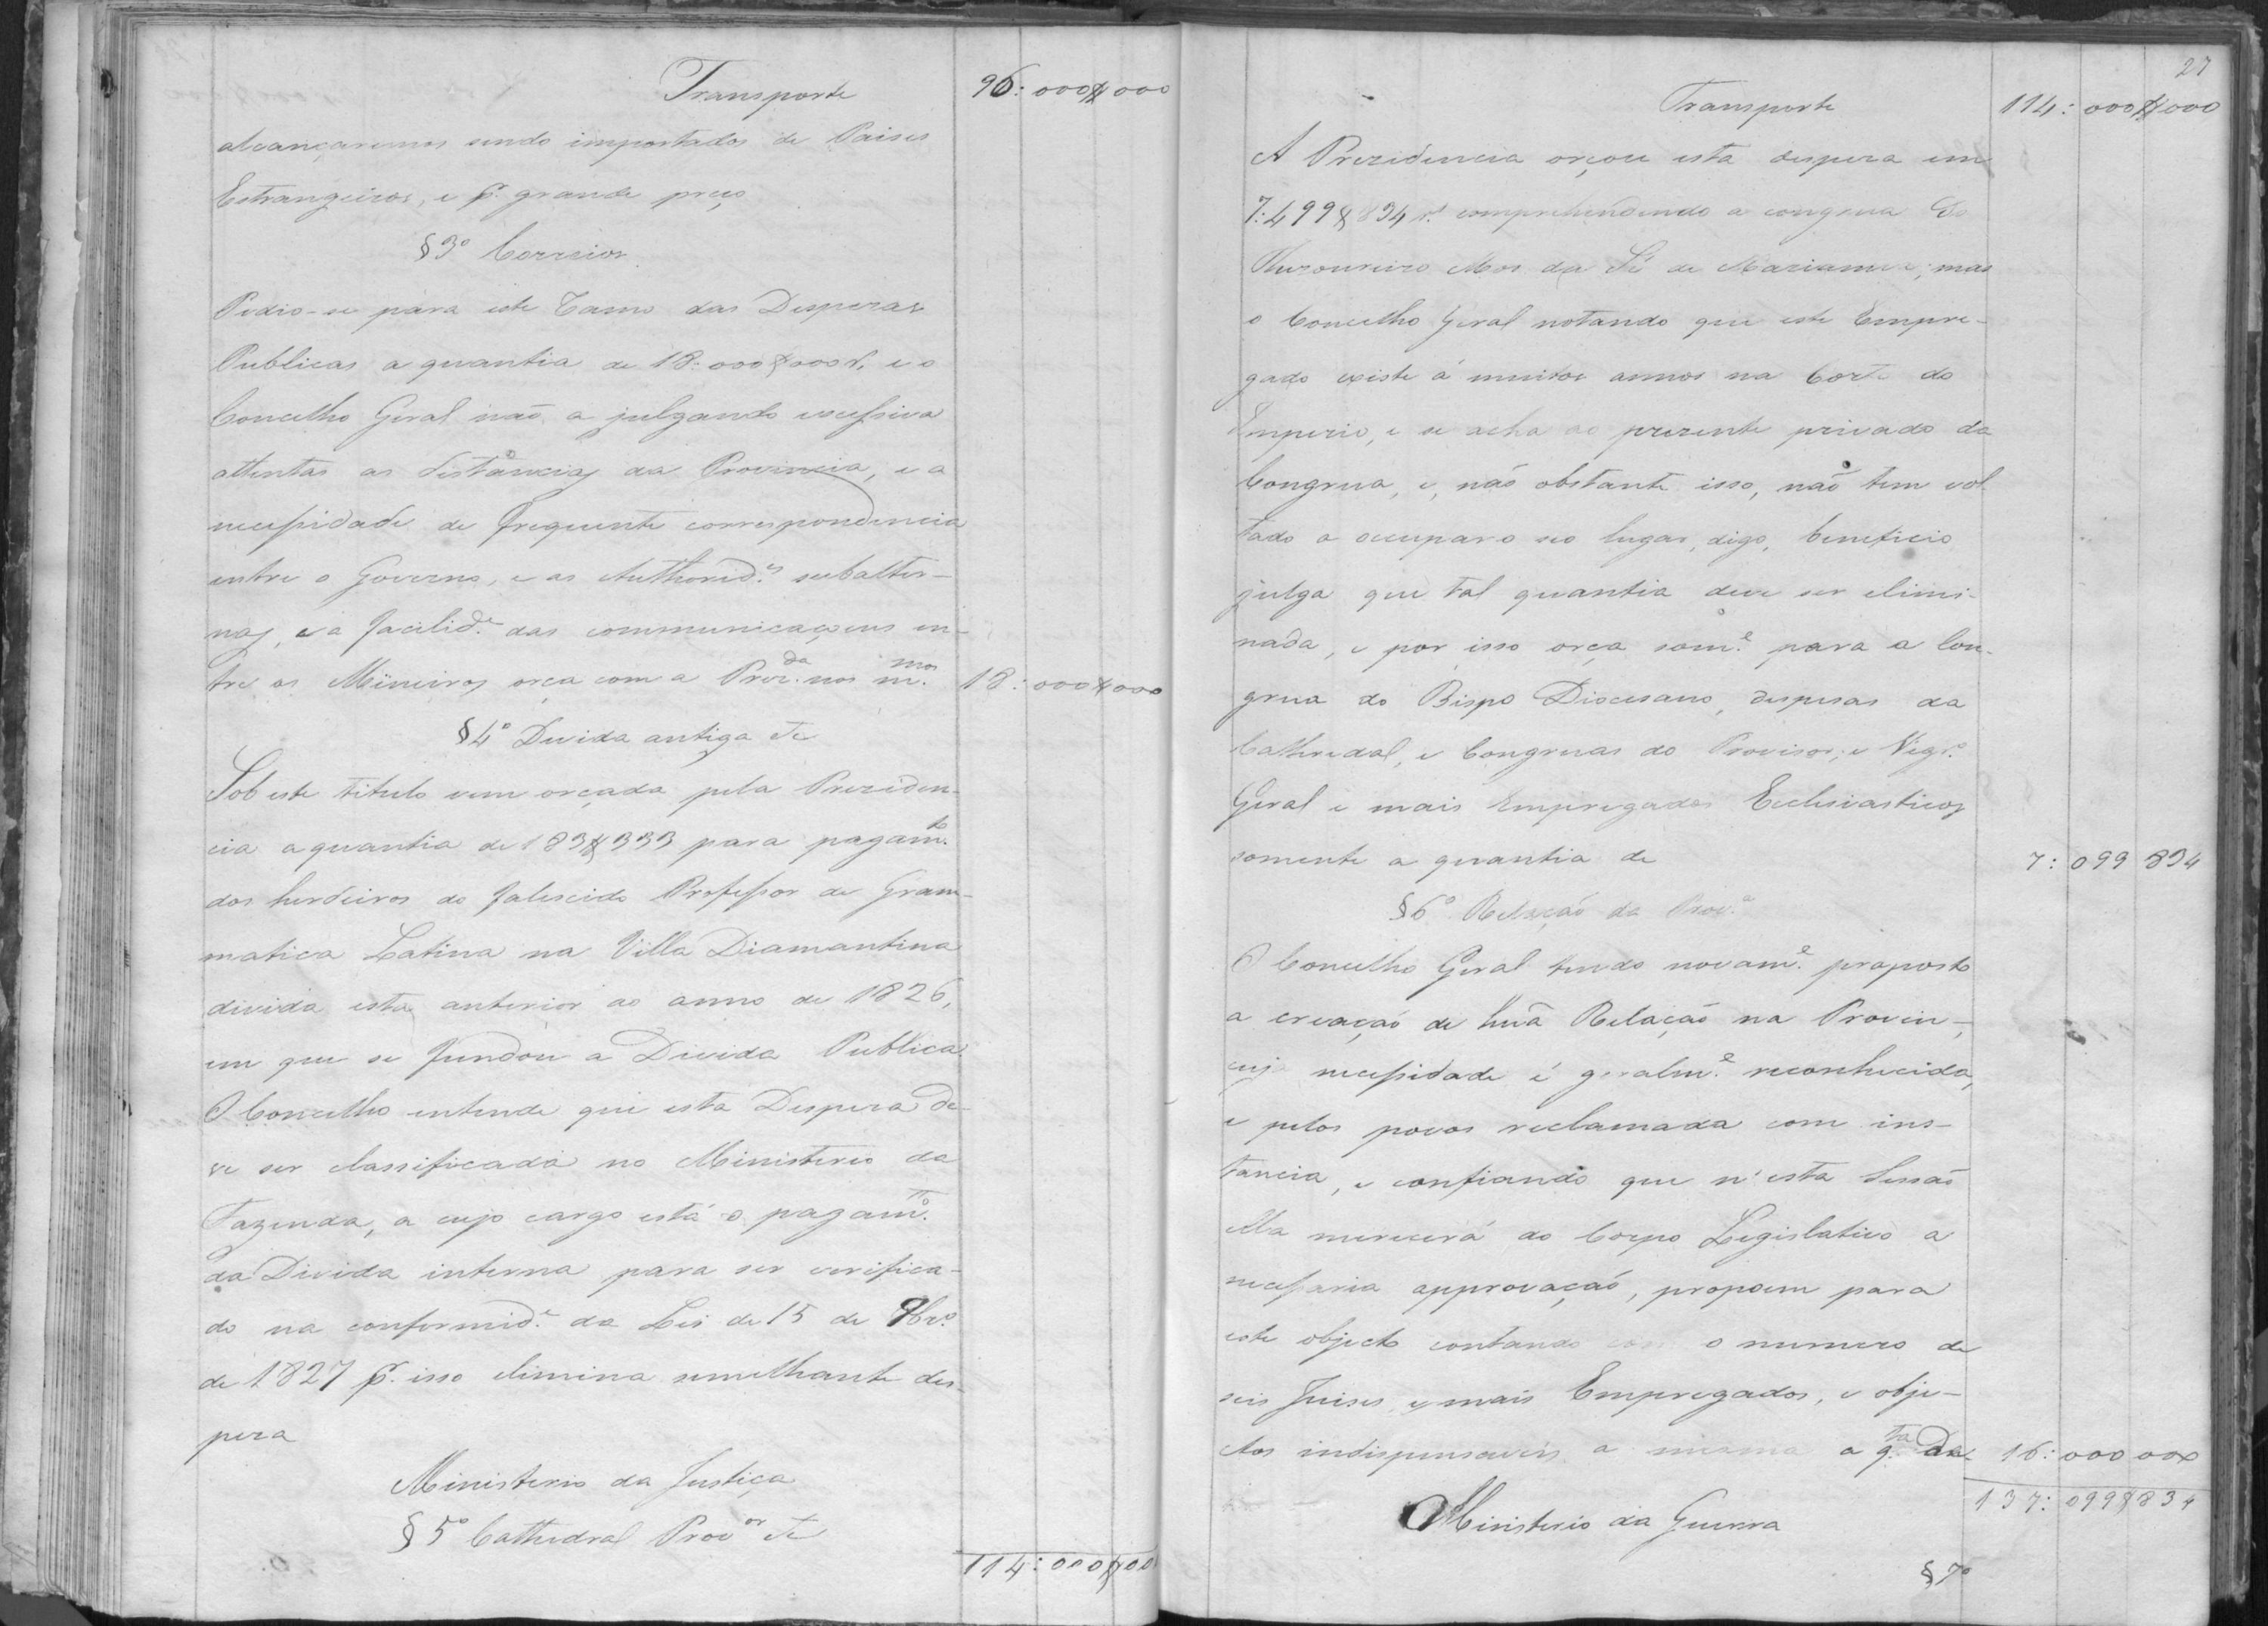 Transporte 96:000$000
alcançaremos sendo importados de Paises
Estrangeiros, e p.r grande preço
§3º Correios
Pedio-se para este ramo das Despezas
Publicas a quantia de 18:000$000 r.s e o
Concelho Geral naõ a julgando excessiva
attentas as distancias da Provincia, e a
necessidade de frequente correspondencia
entre o Governo, e as Authorid.es subalter-
nas, e a facilid.e das communicaçoens en-
tre os Mineiros orça com a Prez.da nos m.mos 18:000$000
§4º Divida antiga &c
Sob este titulo vem orçada pela Preziden-
cia a quantia de 183$333 para pagam.to
dos herdeiros do falescido Professor de Gram-
matica Latina na Villa Diamantina
divida esta anterior ao anno de 1826,
em que se fundou a Divida Publica.
O Concelho entende que esta Despeza de-
ve ser classificada no Ministerio da
Fazenda, a cujo cargo está o pagam.to
da Divida interna para ser verifica-
do na conformid.e da Lei de 15 de 9br.o
de 1827 p.r isso elimina semelhante des-
peza
Ministerio da Justiça
§5º Cathedral Prov.or &c
114:000$00
27
Transporte 114:000$000
A Prezidencia orçou esta despeza em
7:499$834 r.s comprehendendo a congrua do
Thezoureiro Mor da Sé de Marianna; mas
o Concelho Geral notando que este Empre-
gado existe á muitos annos na Corte do
Imperio, e se acha ao prezente privado da
Congrua, e, não obstante isso, naõ tem vol-
tado a occupar o seo lugar, digo, beneficio
julga que tal quantia deve ser elimi-
nada, e por isso orça som.e para a Con-
grua do Bispo Diocesano, despesas da
Cathredal, e Congruas do Provisor, e Vigr.o
Geral e mais Empregados Ecclesiasticos
somente a quantia de 7:099 834
§6º Relação da Prov.a
O Concelho Geral tendo novam.e proposto
a creação de huã Relação na Provin-,
cuja necessidade é geralm.e reconhecida,
e pelos povos reclamada com ins-
tancia, e confiando que n'esta Sessaõ
ella merecerá do Corpo Legislativo a
necessaria approvação, propoem para
este objecto contando com o numero de
seis Juises, e mais Empregados, e obje-
ctos indispensaveis a mesma a q.ta de 16:000 000
137:099$834
Ministerio da Guerra
§7º